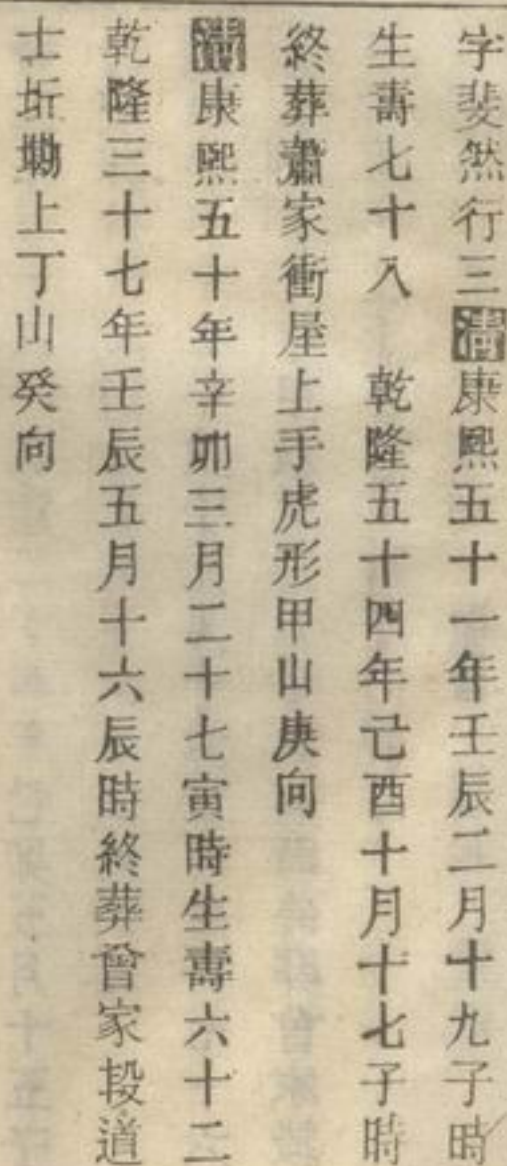 字斐然行三清康熙五十一年壬辰二月十九子時
生壽七十八　乾隆五十四年己酉十月十七子時
終葬蕭家衝屋上手虎形甲山庚向
清康熙五十年辛卯三月二十七寅時生壽六十二
乾隆三十七年壬辰五月十六辰時終葬曾家段道
士坵墈上丁山癸向